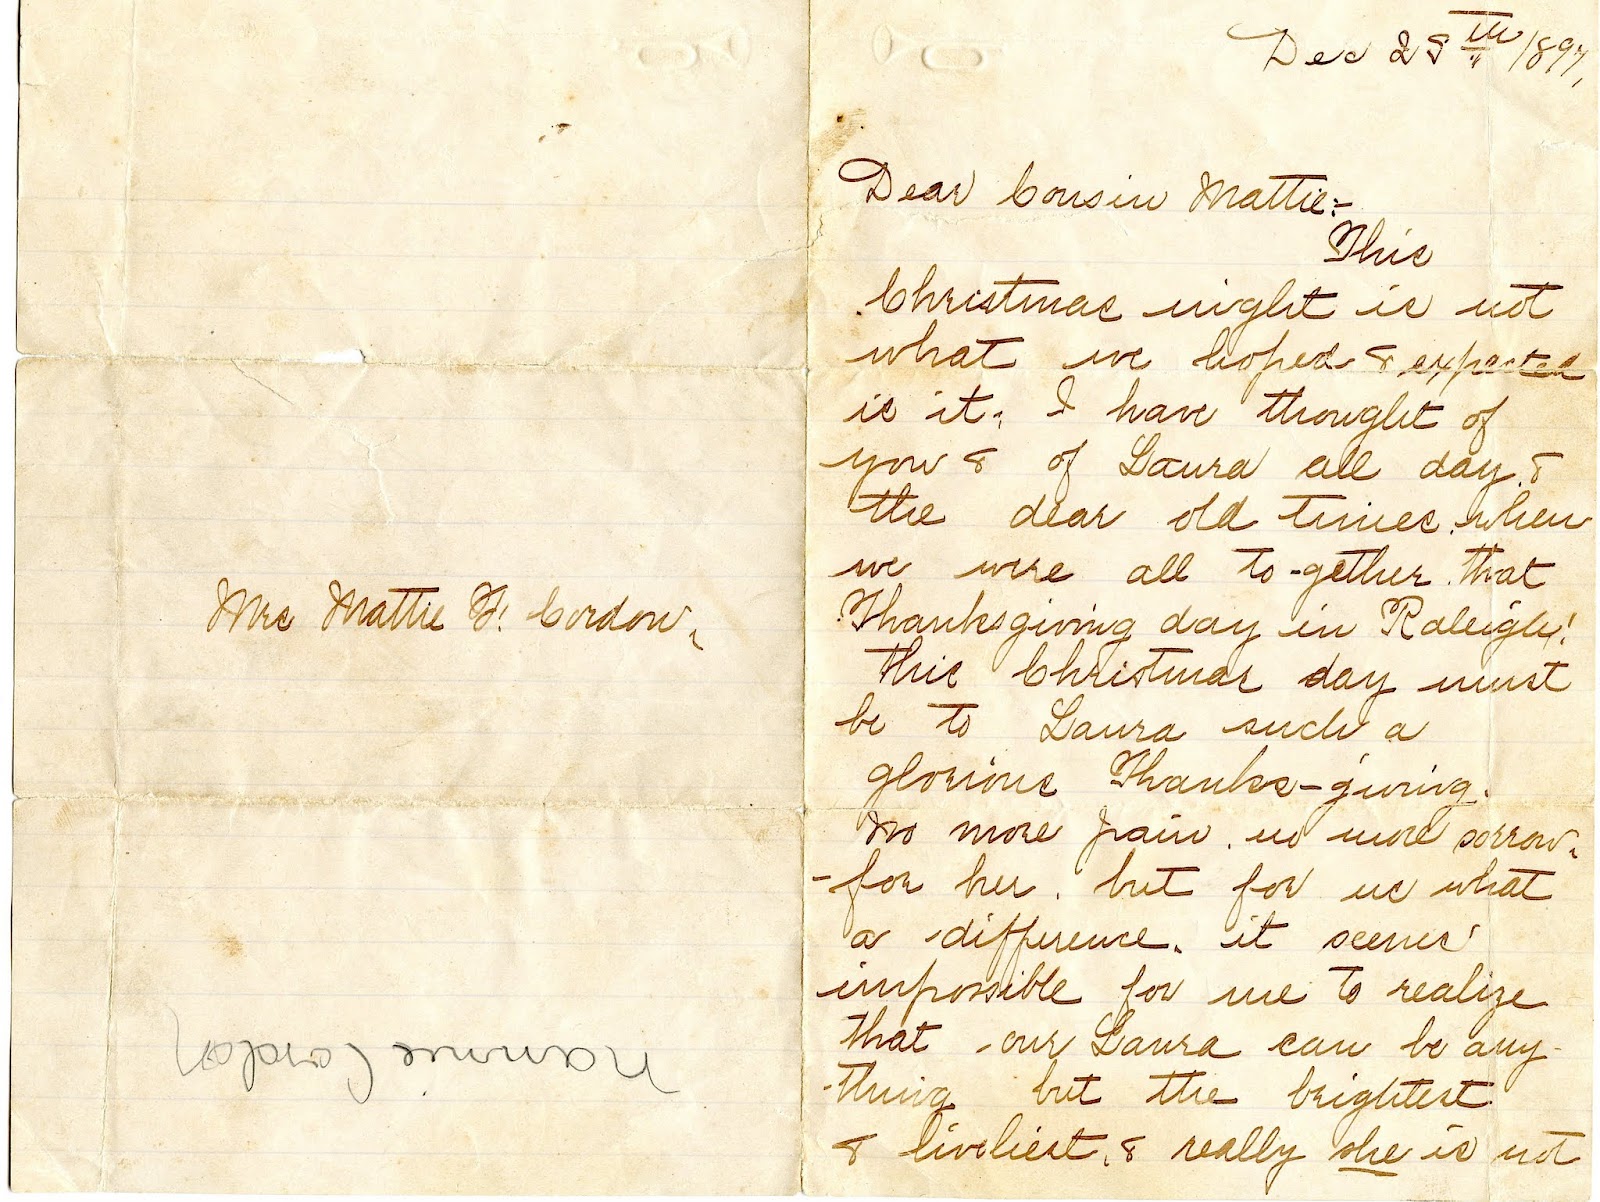 Mrs Mattie F. Cordon,
Nannie Cordon
Dec 25th 1897,
Dear Cousin Mattie:-
This
Christmas night is not
what we hoped & expected
is it, I have thought of
you & of Laura all day &
the dear old times, when
we were all to-gether that
Thanksgiving day in Raleigh!
this Christmas day must
be to Laura such a
glorious Thanks-giving.
No more pain, no more sorrow,
for her, but for us what
a difference, it seems
impossible for me to realize
that our Laura can be any-
thing but the brightest
& liveliest, & really she is not